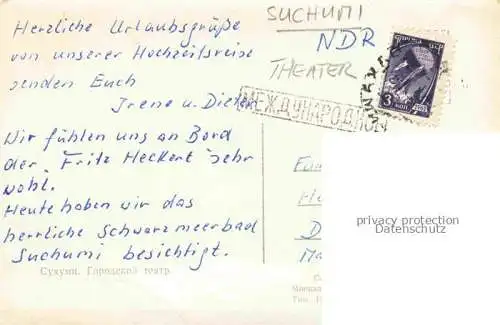 Herzliche Urlaubsgrüße
von unserer Hochzeitsreise
senden Euch
Irene u. Dieter
Wir fühlen uns an Bord
der "Fritz Heckert" sehr
wohl.
Heute haben wir das
herrliche Schwarzmeerbad
Suchumi besichtigt.
Сухуми. Городской театр.
SUCHUMI
NDR
THEATER
МЕЖДУНАРОДНОЕ
3
КОП
privacy protection
Datenschutz